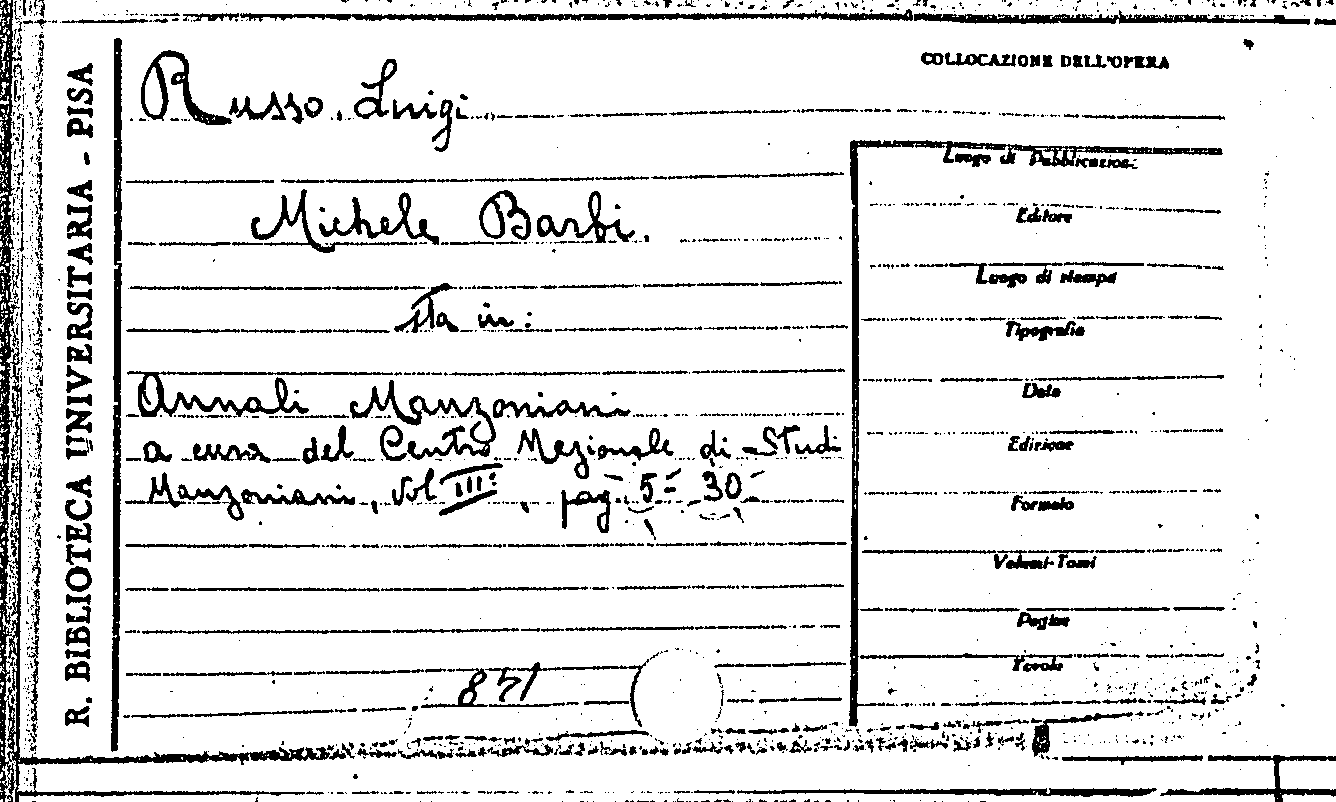 R. BIBLIOTECA UNIVERSITARIA - PISA
COLLOCAZIONE DELL'OPERA
Russo, Luigi.
Michele Barbi.
sta in:
Annali Manzoniani
a cura del Centro Nazionale di Studi
Manzoniani, vol III:, pag. 5-30
Luogo di Pubblicazione
Editore
Luogo di stampa
Tipografia
Data
Edizione
Formato
Volumi-Tomi
Pagine
Tavole